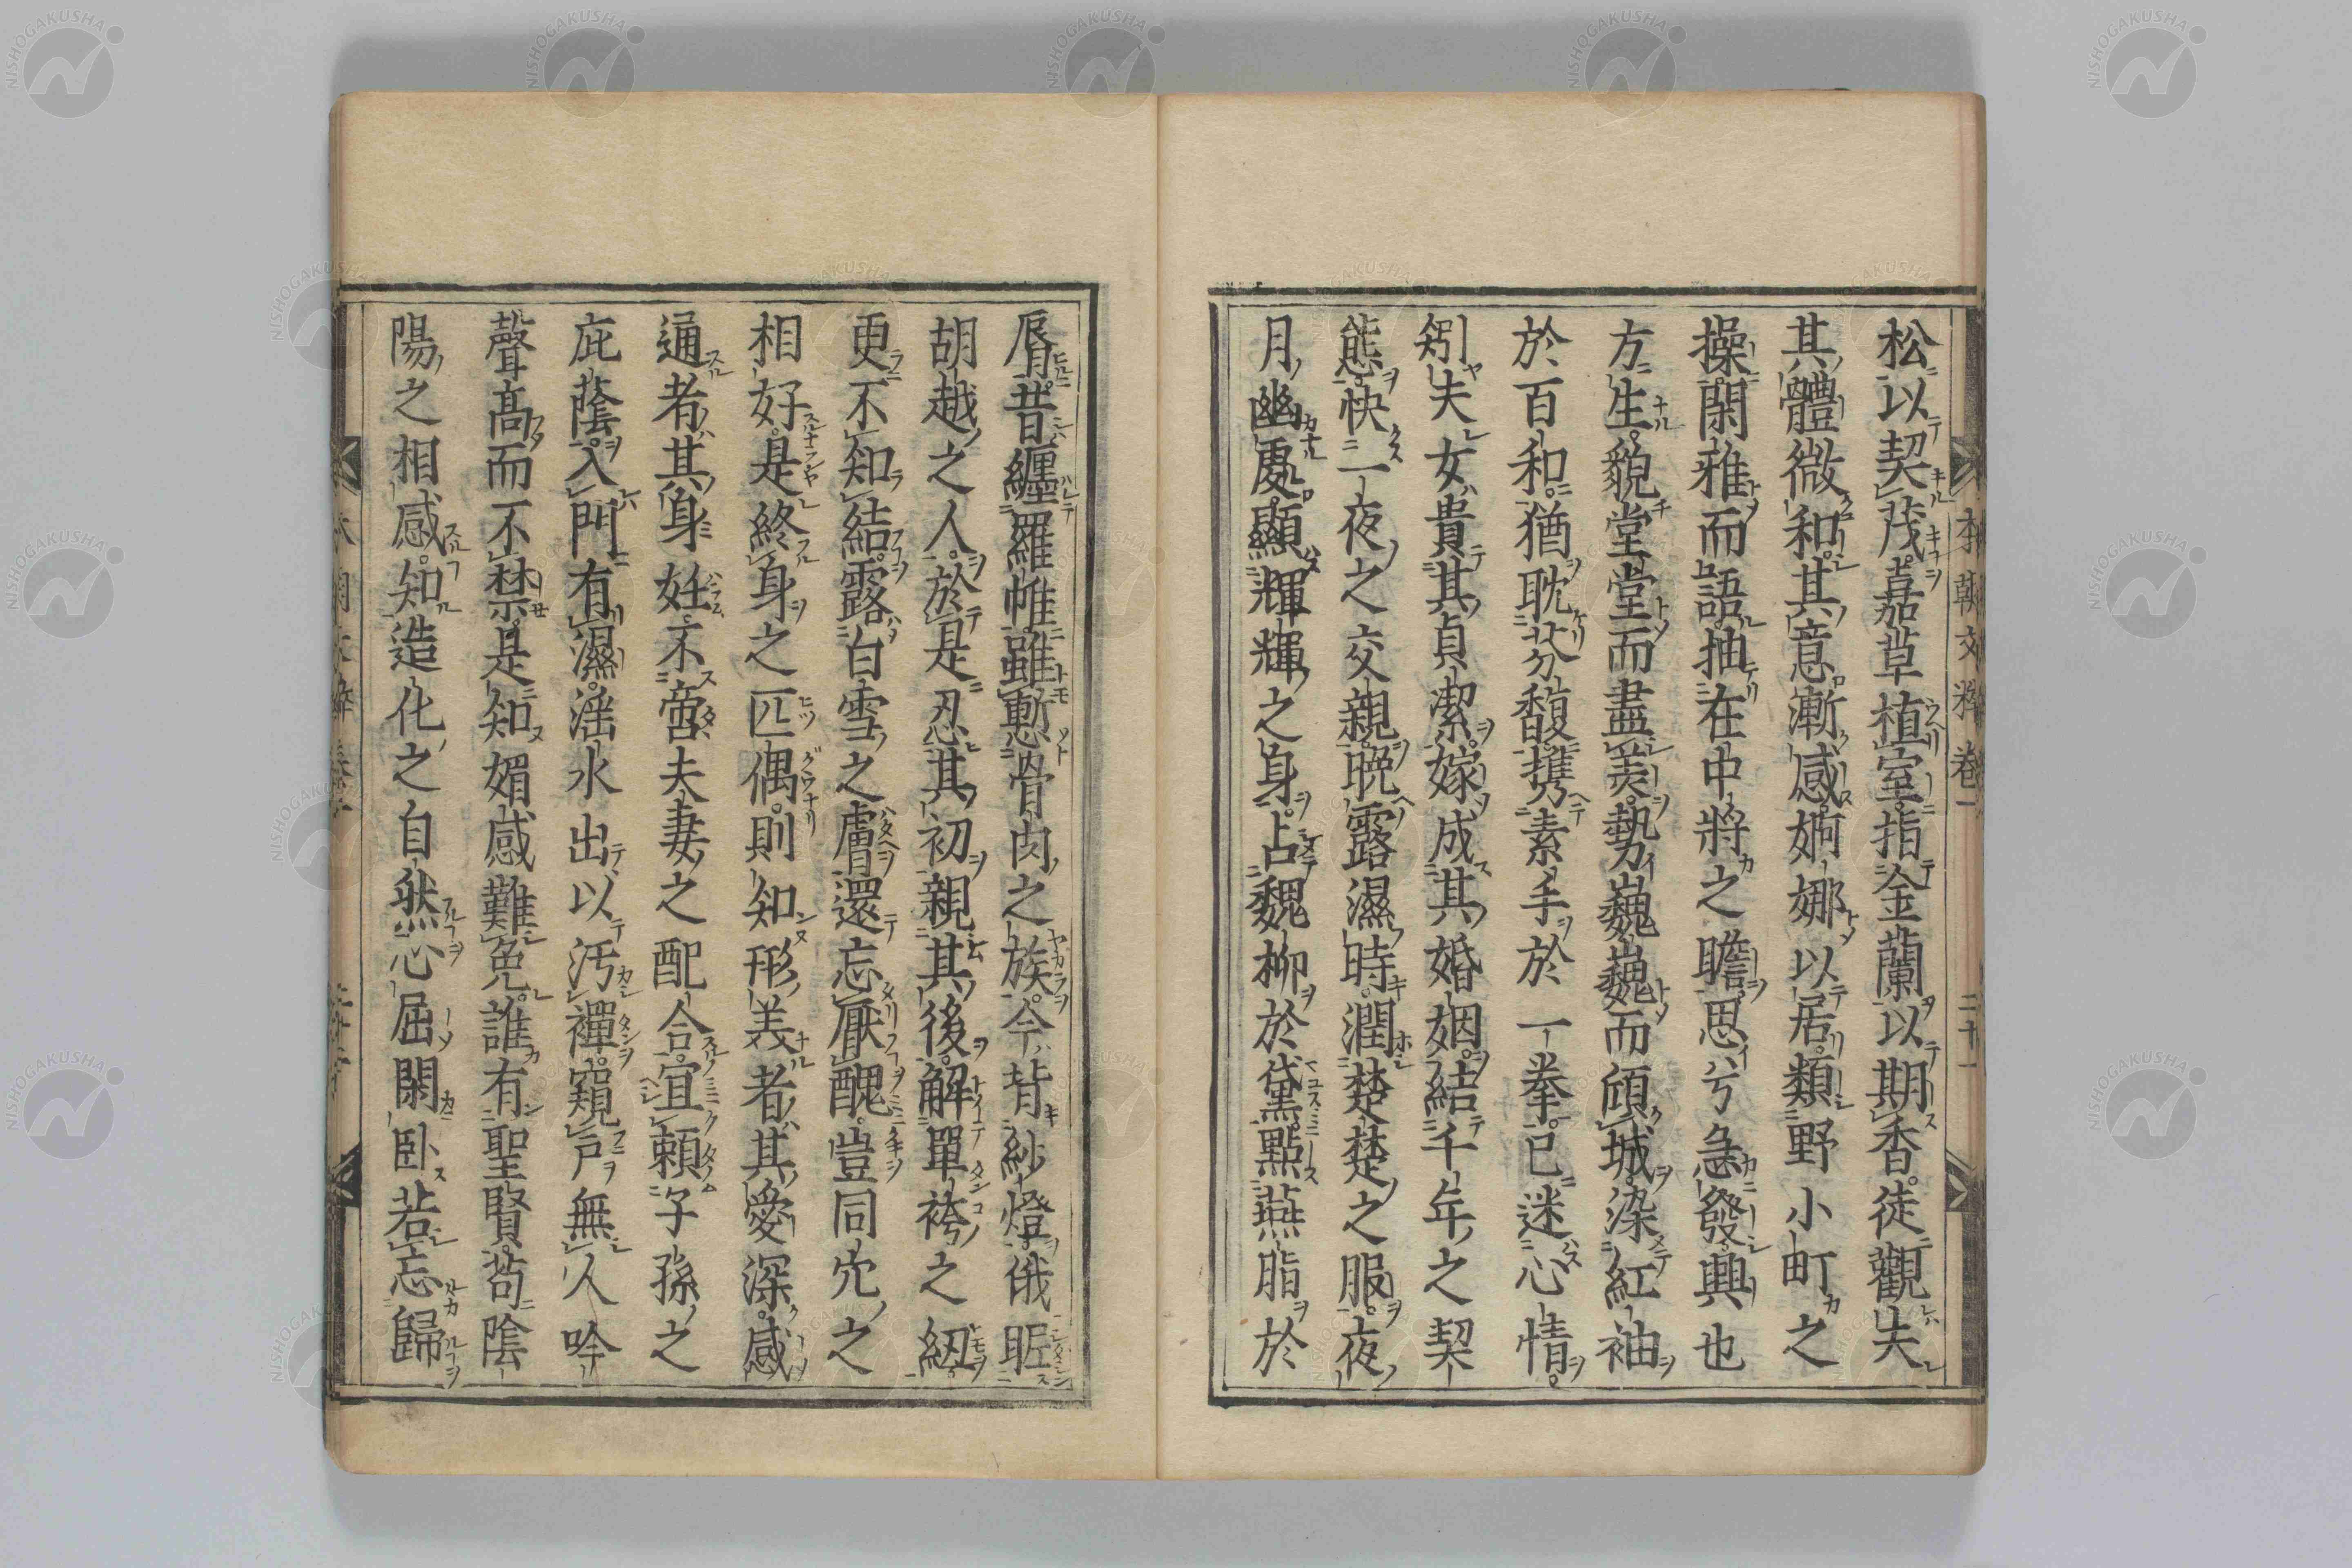 松以契茂嘉草植室指金蘭以期香徒觀夫
其體微和其意漸感婀娜以居類野小町之
操閑雅而語抽在中將之瞻思兮急發興也
方生貌堂堂而盡羨勢巍巍而傾城染紅袖
於百和猶耽芬馥携素手於一拳已迷心情
矧夫女貴其貞潔嫁成其婚姻結千年之契
態快一夜之交親晩露濕時潤楚楚之服夜
月幽處顯輝輝之身占魏柳於黛點燕脂於
脣昔纏羅帷雖慙骨肉之族今背紗燈俄昵
胡越之人於是忍其初親其後解單袴之紉
更不知結露白雪之膚還忘厭醜豈同穴之
相好是終身之匹偶則知形美者其愛深感
通者其身妊不啻夫妻之配合宜賴子孫之
庇蔭入門有濕淫水出以汚褌窺戶無人吟
聲高而不禁是知媚感難免誰有聖賢苟陰
陽之相感知造化之自然心屈閑臥若忘歸
本朝文粹 卷一 二十一
NISHOGAKUSHA